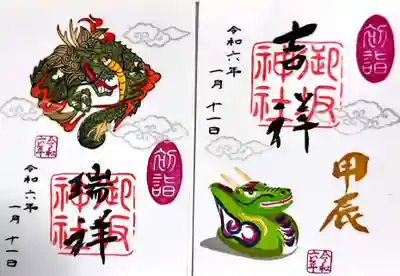 初詣
御坂
神社
瑞祥
令和
六年
令和六年
一月十一日
初詣
御坂
神社
吉祥
令和六年
一月十一日
甲辰
令和
六年